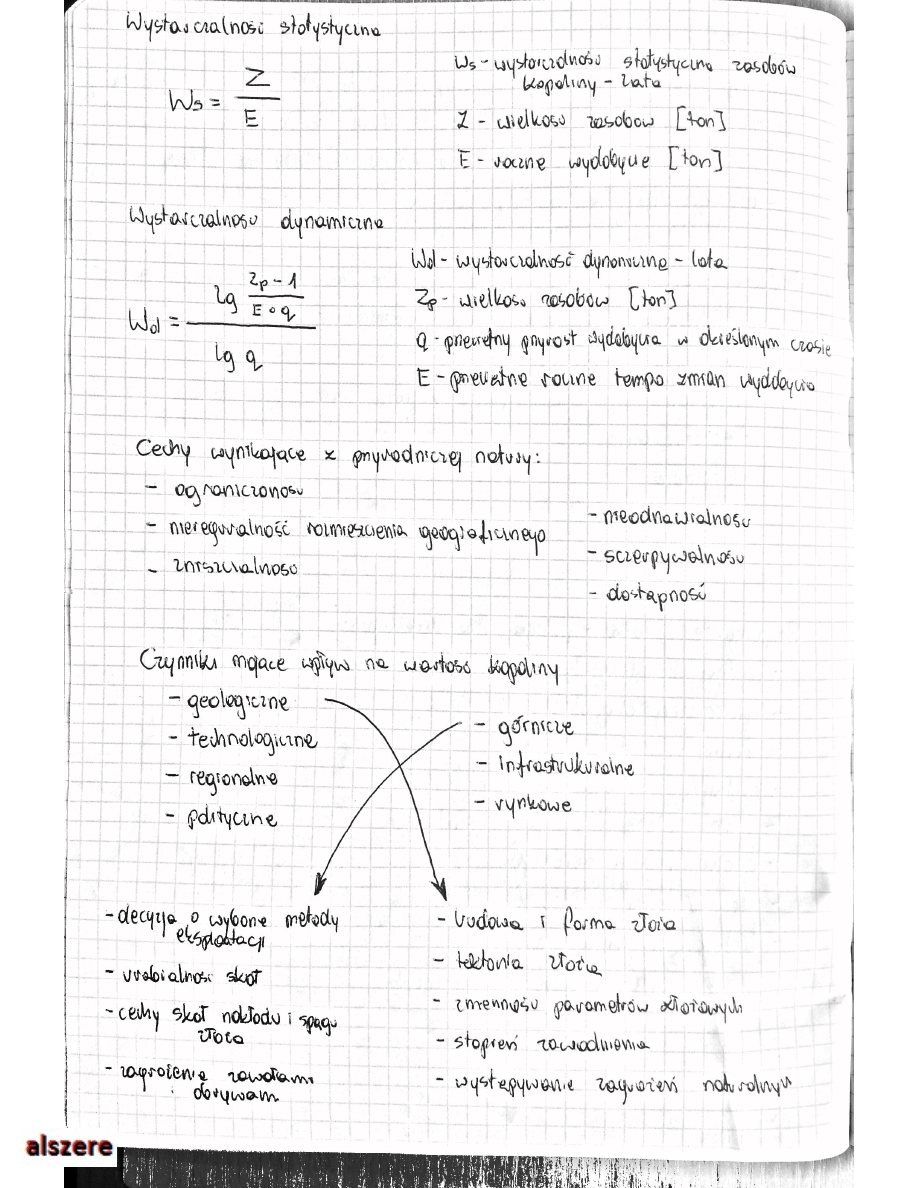 Wystarczalność statystyczna
Ws = Z / E
Ws - wystarczalność statystyczna zasobów
kopaliny - lata
Z - wielkość zasobów [ton]
E - roczne wydobycie [ton]
Wystarczalność dynamiczna
Wd = lg (Zp - 1 / E • q) / lg q
Wd - wystarczalność dynamiczna - lata
Zp - wielkość zasobów [ton]
q - przeciętny przyrost wydobycia w określonym czasie
E - przeciętne roczne tempo zmian wyddbycia
Cechy wynikające z przyrodniczej natury:
- ograniczoność
- nieregularność rozmieszczenia geograficznego
- zniszczalność
- nieodnawialność
- sczerpywalność
- dostępność
Czynniki mające wpływ na wartość kopaliny
- geologiczne
- technologiczne
- regionalne
- polityczne
- górnicze
- infrastrukuralne
- rynkowe
- decyzja o wyborze metody
eksploatacji
- urabialność skał
- cechy skał nakładu i spągu
złoża
- zagrożenie zawałami
i obrywam
- budowa i forma złoża
- tektonia złoża
- zmienność parametrów złożowych
- stopień zawodnienia
- występywanie zagrożeń naturalnych
alszere